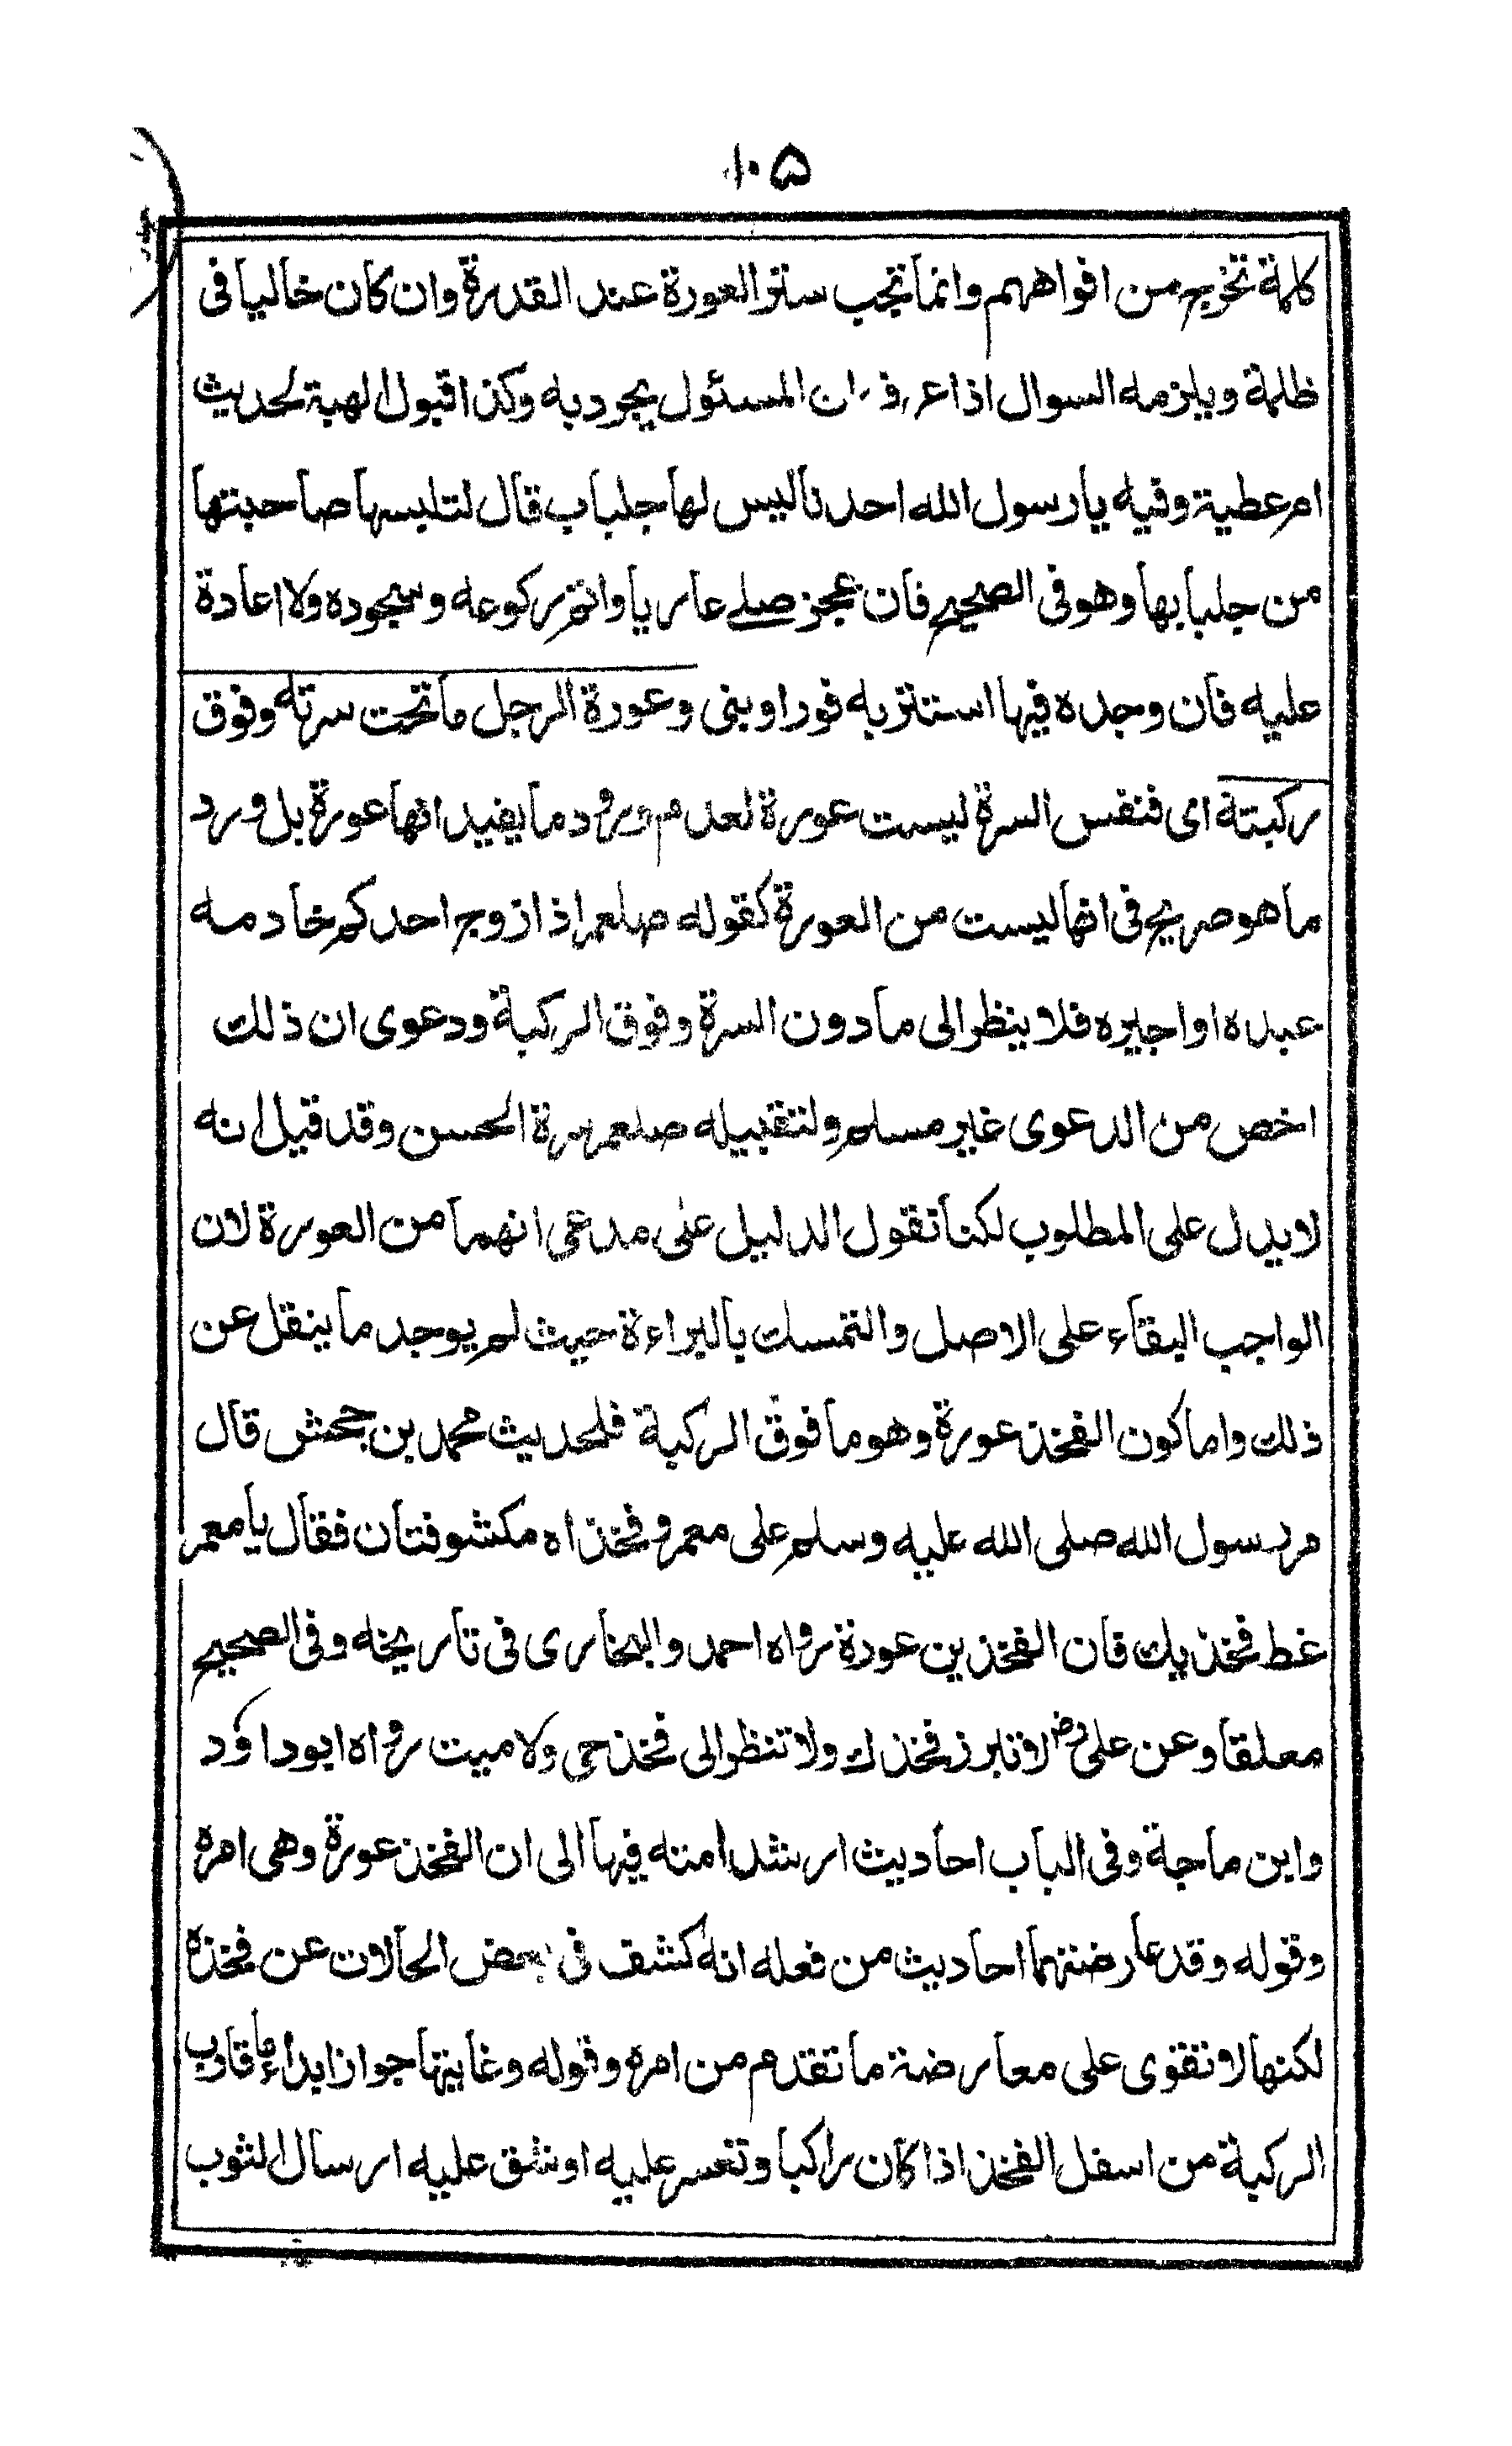 ١٠٥
كلمة تخرج من افواههم وانما تجب ستر العورة عند القدرة وان كان خاليا فى
ظلمة ويلزمه السوال اذا عرف ان المسئول يجود به وكذا قبول الهبة لحديث
ام عطية وفيه يا رسول الله احدنا ليس لها جلباب قال لتلبسها صاحبتها
من جلبابها وهو فى الصحيح فان عجز صلے عاريا واتم ركوعه وسجوده ولا اعادة
عليه فان وجده فيها استتر به فورا وبنى وعورة الرجل ما تحت سرته وفوق
ركبتة اى فنفس السرة ليست عورة لعدم ورود ما يفيد انها عورة بل ورد
ما هو صريح فى انها ليست من العورة كقوله صلعم اذا زوج احدكم خادمه
عبده او اجيره فلا ينظر الى ما دون السرة وفوق الركبة ودعوى ان ذلك
اخص من الدعوى غير مسلم ولتقبيله صلعم سرة الحسن وقد قيل انه
لا يدل على المطلوب لكنا نقول الدليل على مدعى انهما من العورة لان
الواجب البقاء على الاصل والتمسك بالبراءة حيث لم يوجد ما ينقل عن
ذلك واما كون الفخذ عورة وهو ما فوق الركبة فلحديث محمد بن جحش قال
مر رسول الله صلى الله عليه وسلم على معمر وفخذاه مكشوفتان فقال يا معمر
غط فخذيك فان الفخذين عورة رواه احمد والبخارى فى تاريخه وفى الصحيح
معلقا وعن على رض لا تبرز فخذك ولا تنظر الى فخذ حى ولا ميت رواه ابو داؤد
وابن ماجة وفى الباب احاديث ارشد امته فيها الى ان الفخذ عورة وهى امره
وقوله وقد عارضتهما احاديث من فعله انه كشف فى بعض الحالات عن فخذه
لكنها لا تقوى على معارضة ما تقدم من امره وقوله وغايتها جواز ابداء ما قارب
الركبة من اسفل الفخذ اذا كان راكبا وتعسر عليه او شق عليه ارسال الثوب